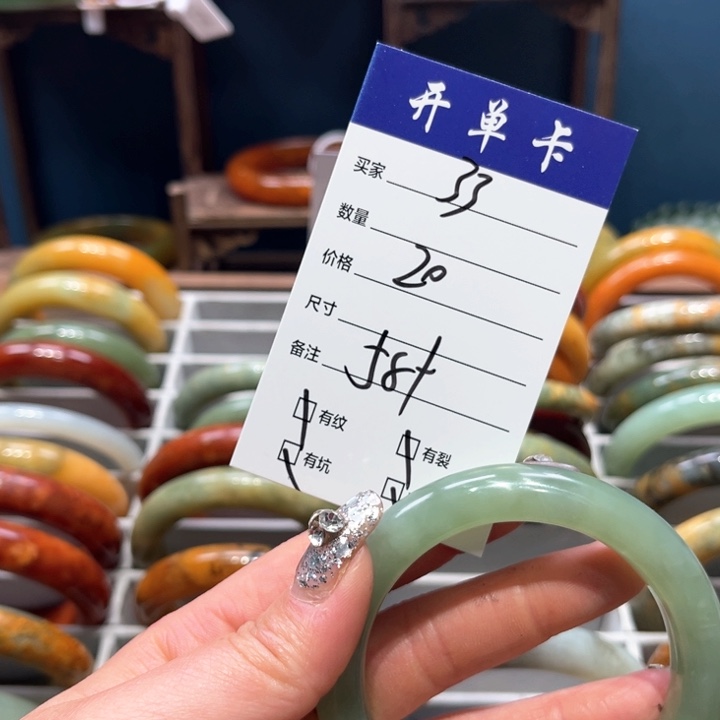 开单卡
买家 33
数量
价格 20
尺寸
备注
有纹
有裂
有坑